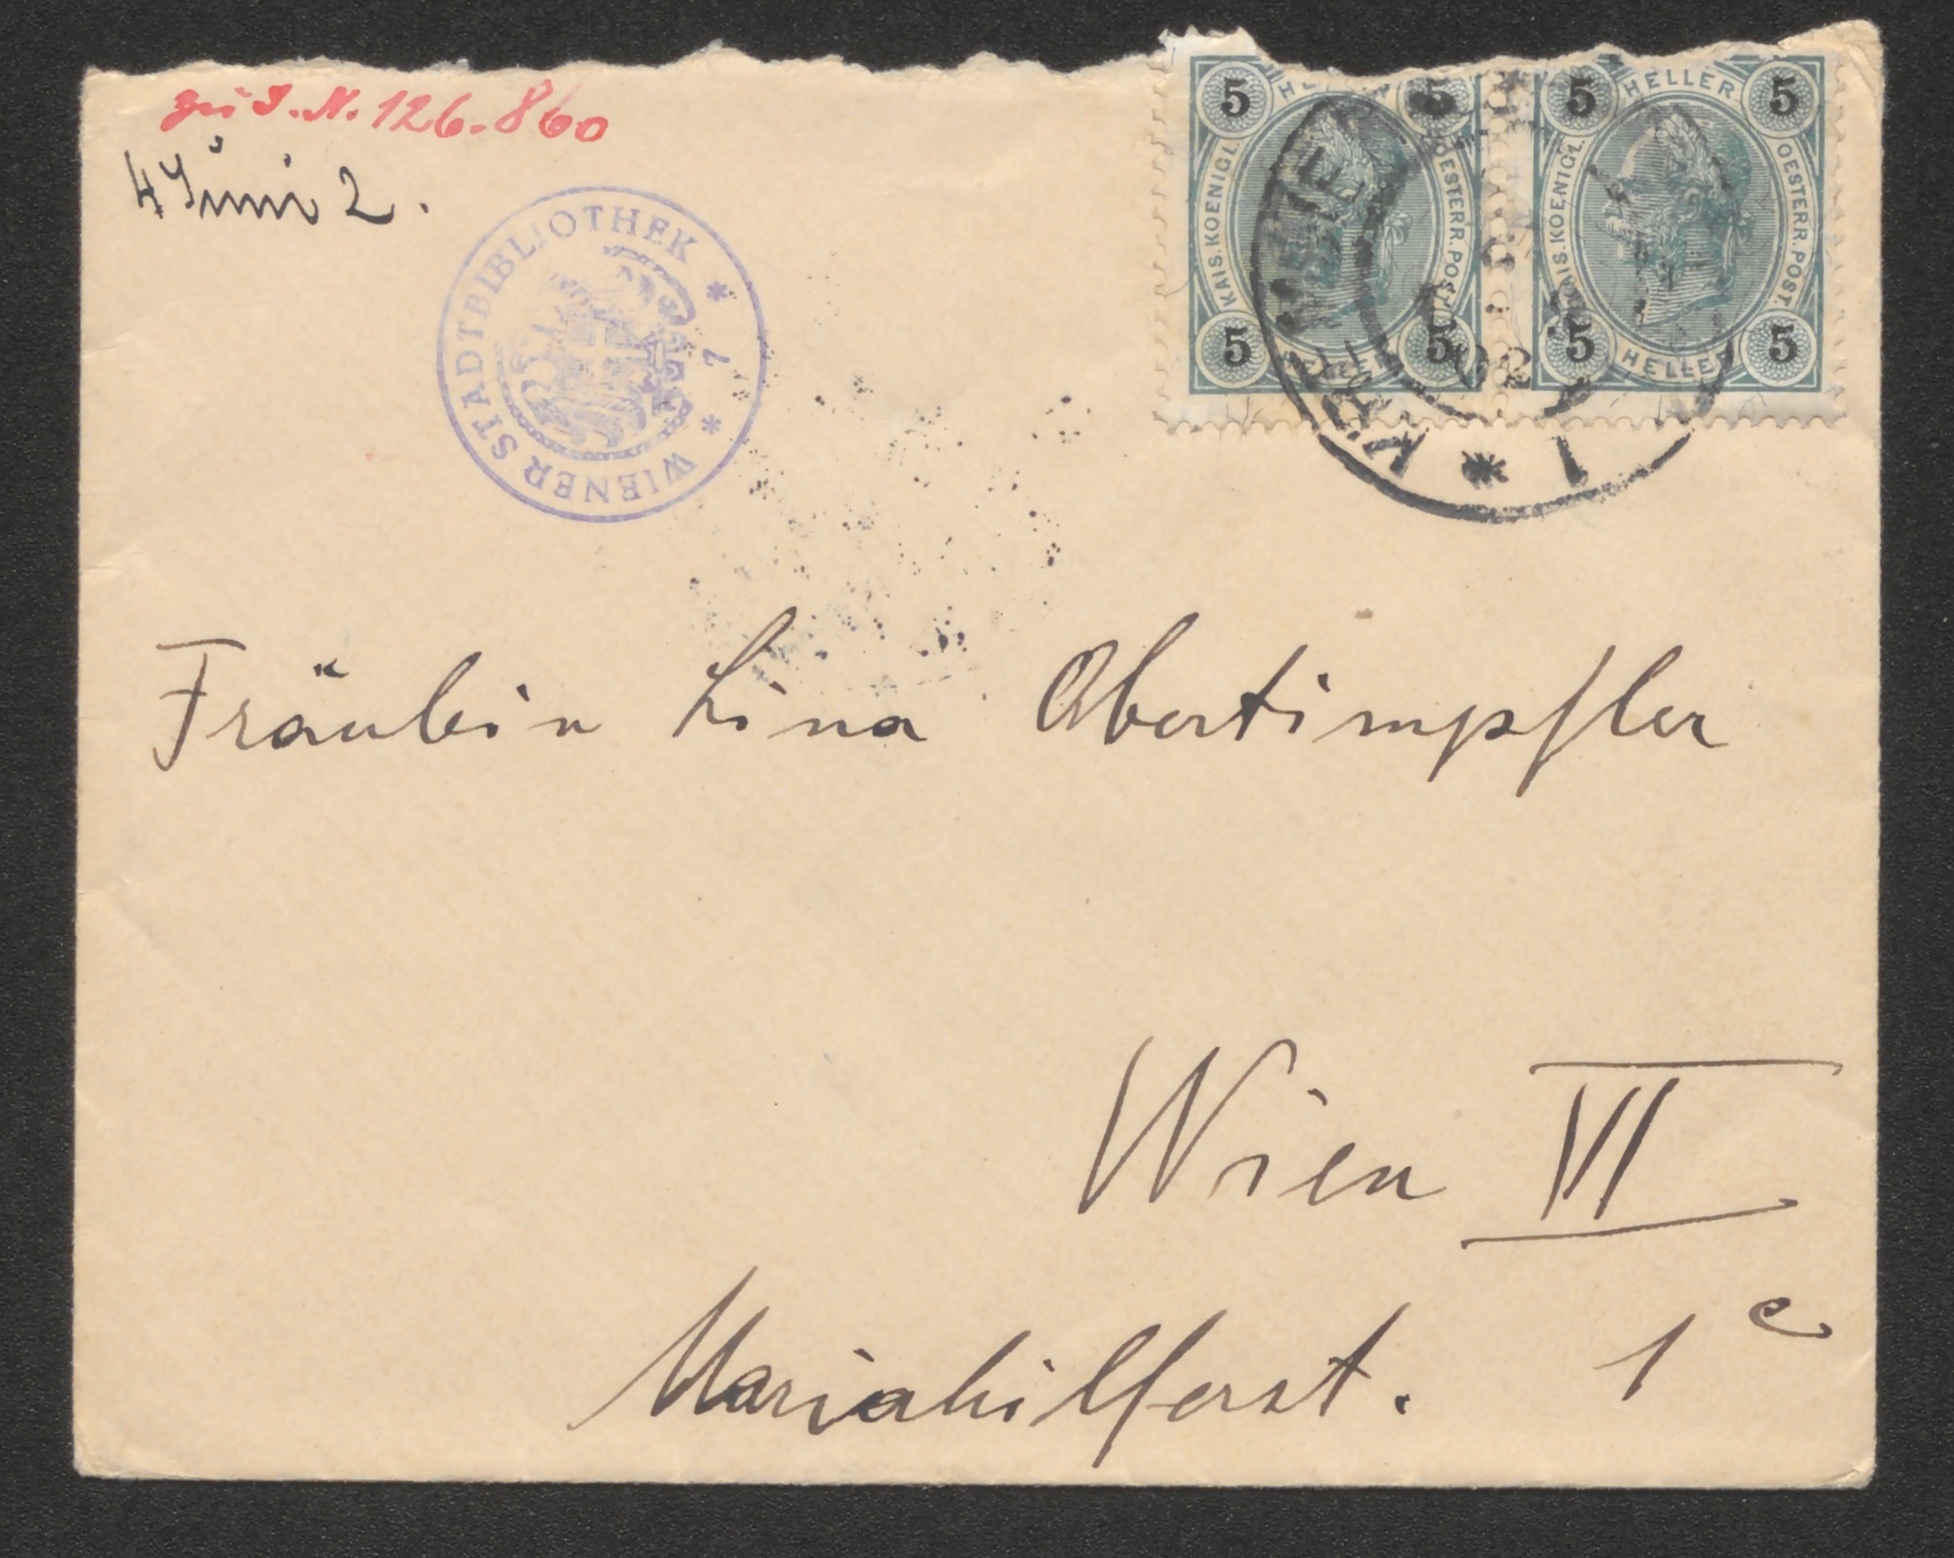 zu I.N. 126.860
4 Juni 2.
WIENER STADTBIBLIOTHEK * 7 *
5 HELLER 5 5 HELLER 5
KAIS. KOENIGL. OESTERR. POST. KAIS. KOENIGL. OESTERR. POST.
5 HELLER 5 5 HELLER 5
02
* 1
Fräulein Lina Obertimpfler
Wien VI
Mariahilferst. 1c